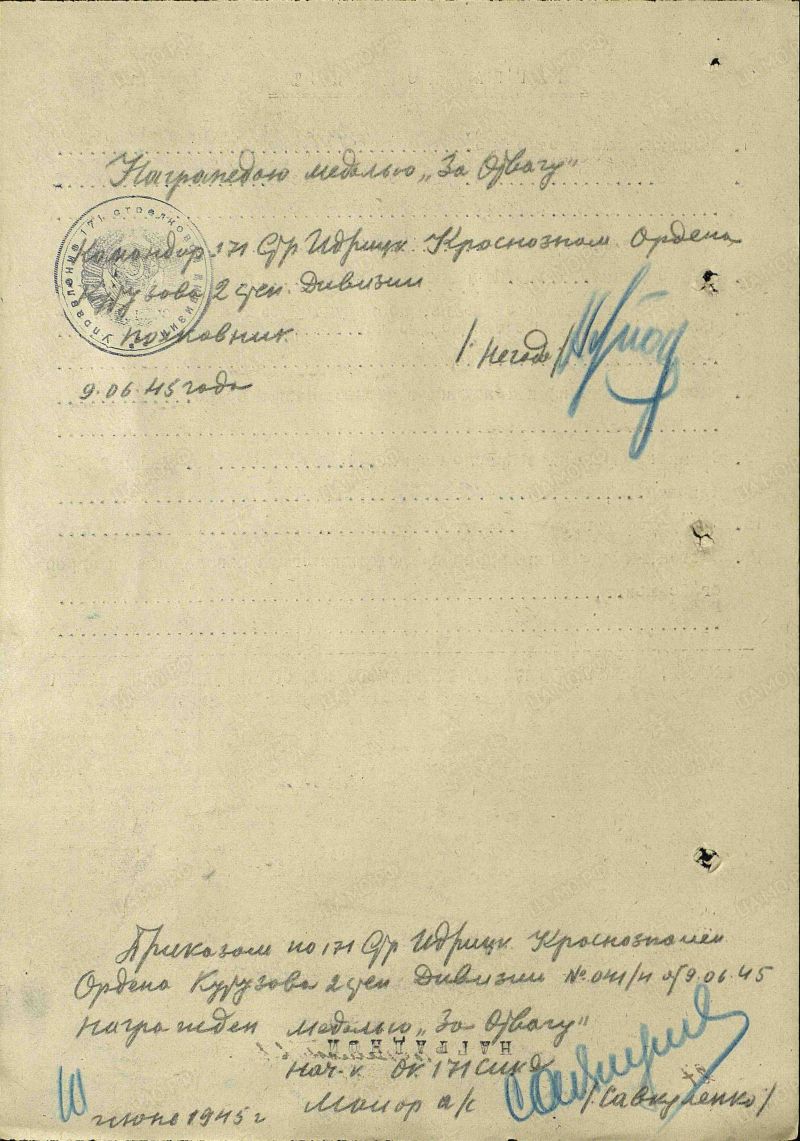 Награждаю медалью „За Отвагу"
Командир 171 Стр Идрицк. Краснознам. Ордена
Кутузова 2 степ. Дивизии
Полковник /Негода/
9.06.45 года
Управление 171 стрелковой дивизии
Приказом по 171 Стр Идрицк Краснознамен
Ордена Кутузова 2 степ Дивизии № 041/н от 9.06.45
Награжден медалью „За Отвагу"
НАГРАДНОЙ
Нач-к ОК 171
Майор а/с /Савкуненко/
10 июня 1945 г